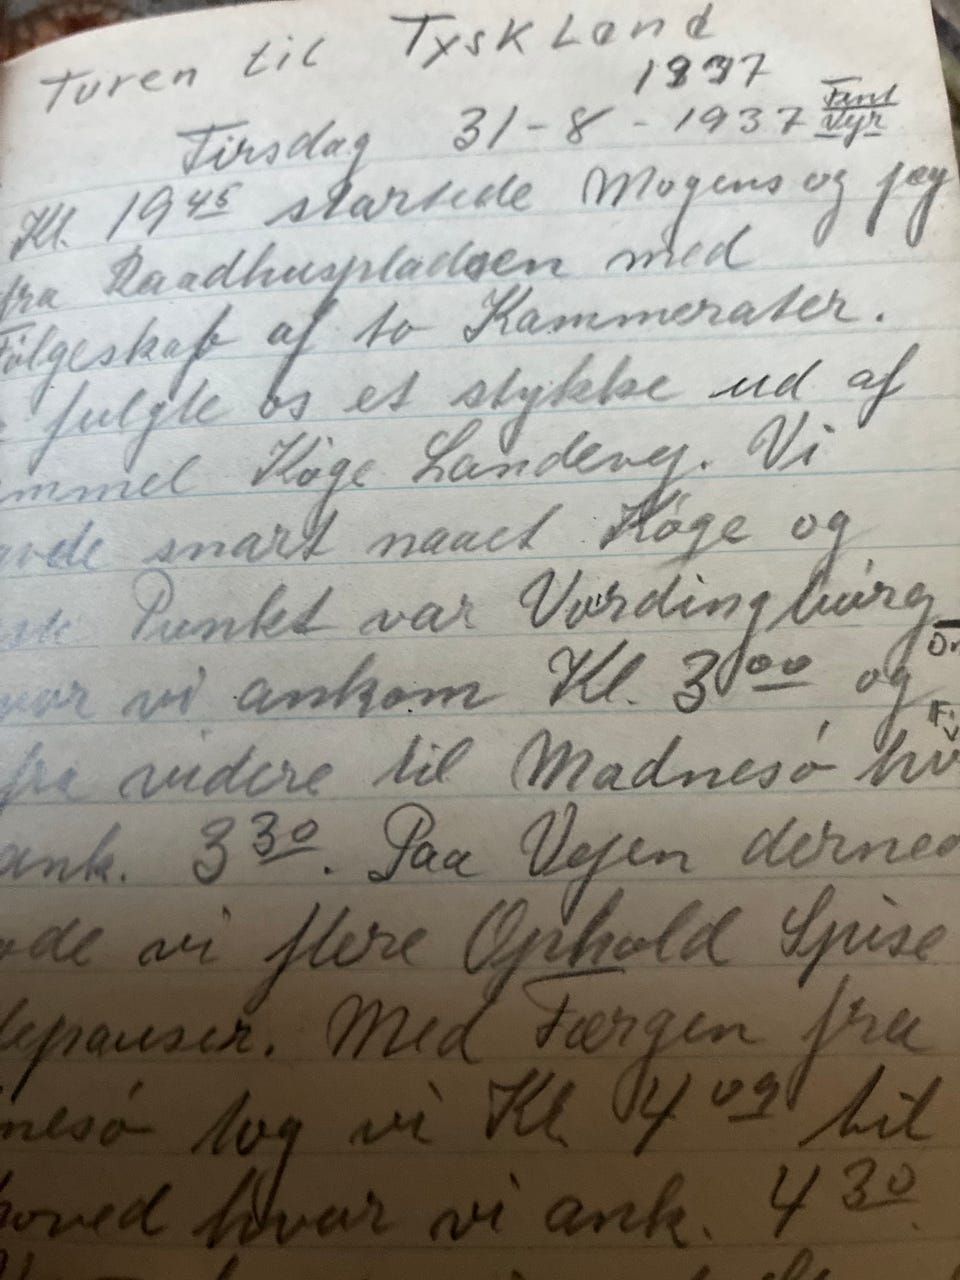 Turen til Tyskland
1937
Tirsdag 31-8-1937
Kl. 19 45 startede Mogens og jeg
fra Raadhuspladsen med
Følgeskab af to Kammerater.
fulgte os et stykke ud af
mmel Køge Landevej. Vi
avde snart naaet Køge og
Punkt var Vordingborg
vor vi ankom Kl. 3 00 og
fra videre til Madnesø hv
ank. 3 30. Paa Vejen derned
ode vi flere Ophold Spise
depauser. Med Færgen fra
nesø tog vi Kl. 4 00 til
hoved hvor vi ank. 4 30.